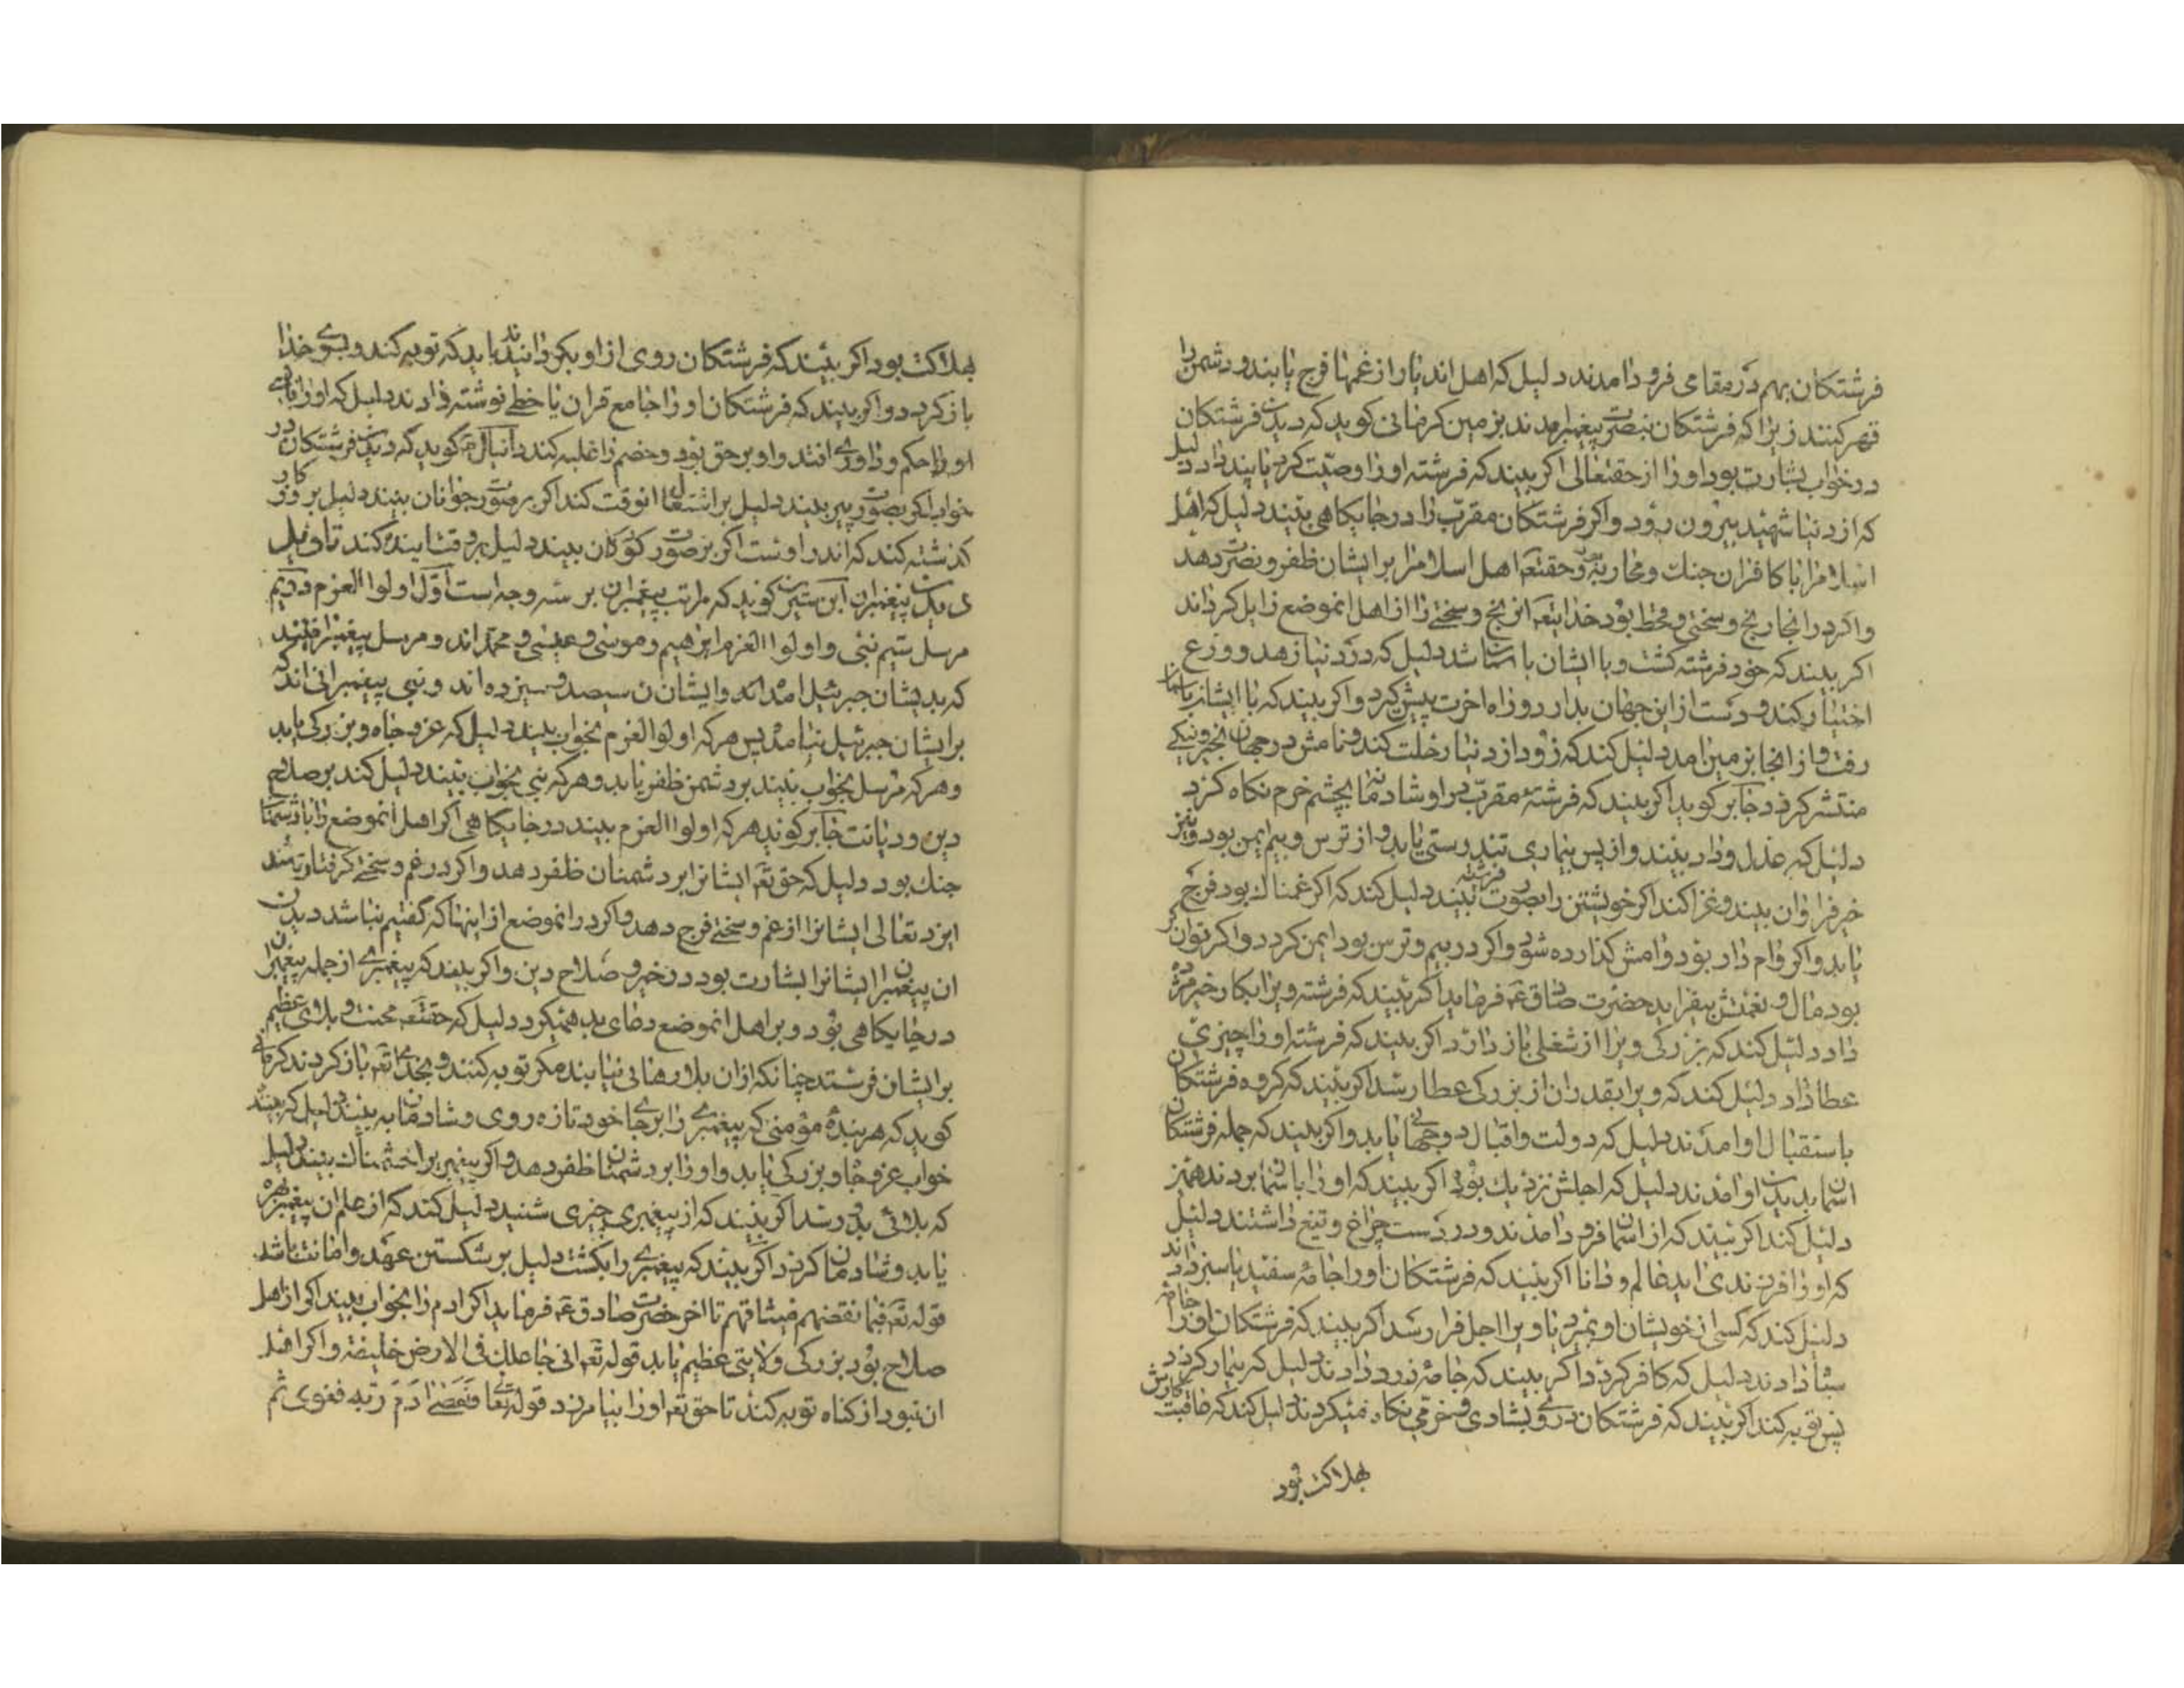 فرشتکان بهم در مقامی فرود امدند دلیل که اهل اندیار از غمها فرج یابند و دشمن را
قهر کنند زیرا که فرشتکان بنصرت پیغمبر امدند بزمین کرمانی کوید که دیدن فرشتکان
در خواب بشارت بود او را از حقتعالی اکر بیند که فرشته او را وصیت کرد یا پند داد دلیل
که از دنیا شهید بیرون رود و اکر فرشتکان مقرب را در جایکاهی بیند دلیل که اهل
اسلامرا با کافران جنک و محاربه بود و حقتعه اهل اسلامرا بر ایشان ظفر و نصرت دهد
و اکر در انجا رنج و سختی و قحط بود خدایتعه انرنج و سختے را از اهل انموضع زایل کرداند
اکر بیند که خود فرشته کشت و با ایشان باسمان شد دلیل که در دنیا زهد و ورع
اختیار کند و دست از این جهان بدارد و راه اخرت پیش کیرد و اکر بیند که با ایشان باسمان
رفت و از انجا بزمین امد دلیل کند که زود از دنیا رحلت کند و نامش در جهان بخیر و نیکے
منتشر کردد جابر کوید اکر بیند که فرشتهٔ مقرب در او شادمانه بچشم خرم نکاه کرد
دلیل که عدل و داد بیند و از پس بیماری تندرستی یابد و از ترس و بیم ایمن بود و نیز
خیر فراوان بیند و غزا کند اکر خویشتن را بصورت فرشته بیند دلیل کند که اکر غمناک بود فرج
یابد و اکر وام دار بود وامش کذارده شود و اکر در بیم و ترس بود ایمن کردد و اکر توانکر
بود مال و نعمتش بیفزاید حضرت صادق عه فرماید اکر بیند که فرشته ویرا بکار خیر مژده
داد دلیل کند که بزرکی ویرا از شغلی باز دارد اکر بیند که فرشته او را چیزی
عطا داد دلیل کند که ویرا بقدر ان از بزرکی عطا رسد اکر بیند که کروه فرشتکان
باستقبال او امدند دلیل که دولت و اقبال دوجهانی یابد و اکر بیند که جمله فرشتکان
اسمان بدیدن او امدند دلیل که اجلش نزدیک بود اکر بیند که او را باسمان بردند همین
دلیل کند اکر بیند که از اسمان فرود امدند و در دست چراغ و تیغ داشتند دلیل
که او را فرزندی اید عالم و دانا اکر بیند که فرشتکان او را جامهٔ سفید یا سبز دادند
دلیل کند که کسی از خویشان او بمیرد یا ویرا اجل فرا رسد اکر بیند که فرشتکان او را جامهٔ
سیاه دادند دلیل که کافر کردد اکر بیند که جامهٔ زرد دادند دلیل که بیمار کردد
پس توبه کند اکر بیند که فرشتکان در وے بشادی و خرمی نکاه نمیکردند دلیل کند که عاقبت کارش
بهلاکت بود
بهلاکت بود اکر بیند که فرشتکان روی از او بکردانیدند باید که توبه کند و بسوے خدا
باز کردد و اکر بیند که فرشتکان او را جامع قران یا خطے نوشته دادند دلیل که او را باکسے
او را حکم و داورے افتد و او بر حق بود و خصم را غلبه کند دانیال عه کوید که دیدن فرشتکان در
خواب اکر بصورت پیر بیند دلیل بر اشتغال انوقت کند اکر بر صورت جوانان بیند دلیل بر روزکار
کذشته کند که اندر اوست اکر بر صورت کودکان بیند دلیل بر وقت اینده کند تاویل
دیدن پیغمبران ابن سیرین کوید که مراتب پیغمبران بر سه وجه است اول اولوا العزم و دویم
مرسل سیم نبی و اولوا العزم ابرهیم و موسی و عیسی و محمد اند و مرسل پیغمبرانیند
که بدیشان جبرئیل امد اند و ایشان سیصد و سیزده اند و نبی پیغمبرانی اند که
بر ایشان جبرئیل نیامد پس هر که اولوا العزم بخواب بیند دلیل که عز و جاه و بزرکی یابد
و هر که مرسل بخواب بیند بر دشمن ظفر یابد و هر که نبی بخواب بیند دلیل کند بر صلاح
دین و دیانت جابر کوید هر که اولوا العزم بیند در جایکاهی اکر اهل انموضع را با دشمنان
جنک بود دلیل که حق تعه ایشانرا بر دشمنان ظفر دهد و اکر در غم و سختے کرفتار باشند
ایزد تعالی ایشانرا از غم و سختے فرج دهد و اکر در انموضع از اینها که کفتیم نباشد دیدن
ان پیغمبران ایشانرا بشارت بود در خیر و صلاح دین و اکر بیند که پیغمبرے از جمله پیغمبران
در جایکاهی بود و بر اهل انموضع دعای بد همیکرد دلیل که حقتعه محنت و بلای عظیم
بر ایشان فرستد چنانکه از ان بلا رهائی نیابند مکر توبه کنند و بخدای تعه باز کردند کرمانے
کوید که هر بندهٔ مؤمنی که پیغمبرے را بر جا خود تازه روی و شادمان به بیند دلیل که بیننده
خواب عز و جاه و بزرکی یابد و او را بر دشمنان ظفر دهد و اکر پیغمبر را خشمناک بیند دلیل
که بلائی بدو رسد اکر بیند که از پیغمبری چیزی شنید دلیل کند که از علم ان پیغمبر بهره
یابد و شادمان کردد اکر بیند که پیغمبرے را بکشت دلیل بر شکستن عهد و امانت باشد
قوله تعه فبما نقضهم میثاقهم تا اخر حضرت صادق عه فرماید اکر ادم را بخواب بیند اکر از اهل
صلاح بود بزرکی و ولایتی عظیم یابد قوله تعه انی جاعل فی الارض خلیفة و اکر اهل
ان نبود از کناه توبه کند تا حق تعه او را بیامرزد قوله تعا فعصی ادم ربه فغوی ثم